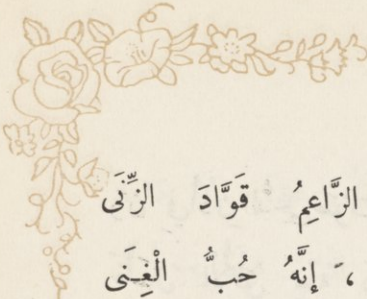 الزَّاعِمُ قَوَّادَ الزِّنَى
، إِنَّهُ حُبُّ الْغِنَى